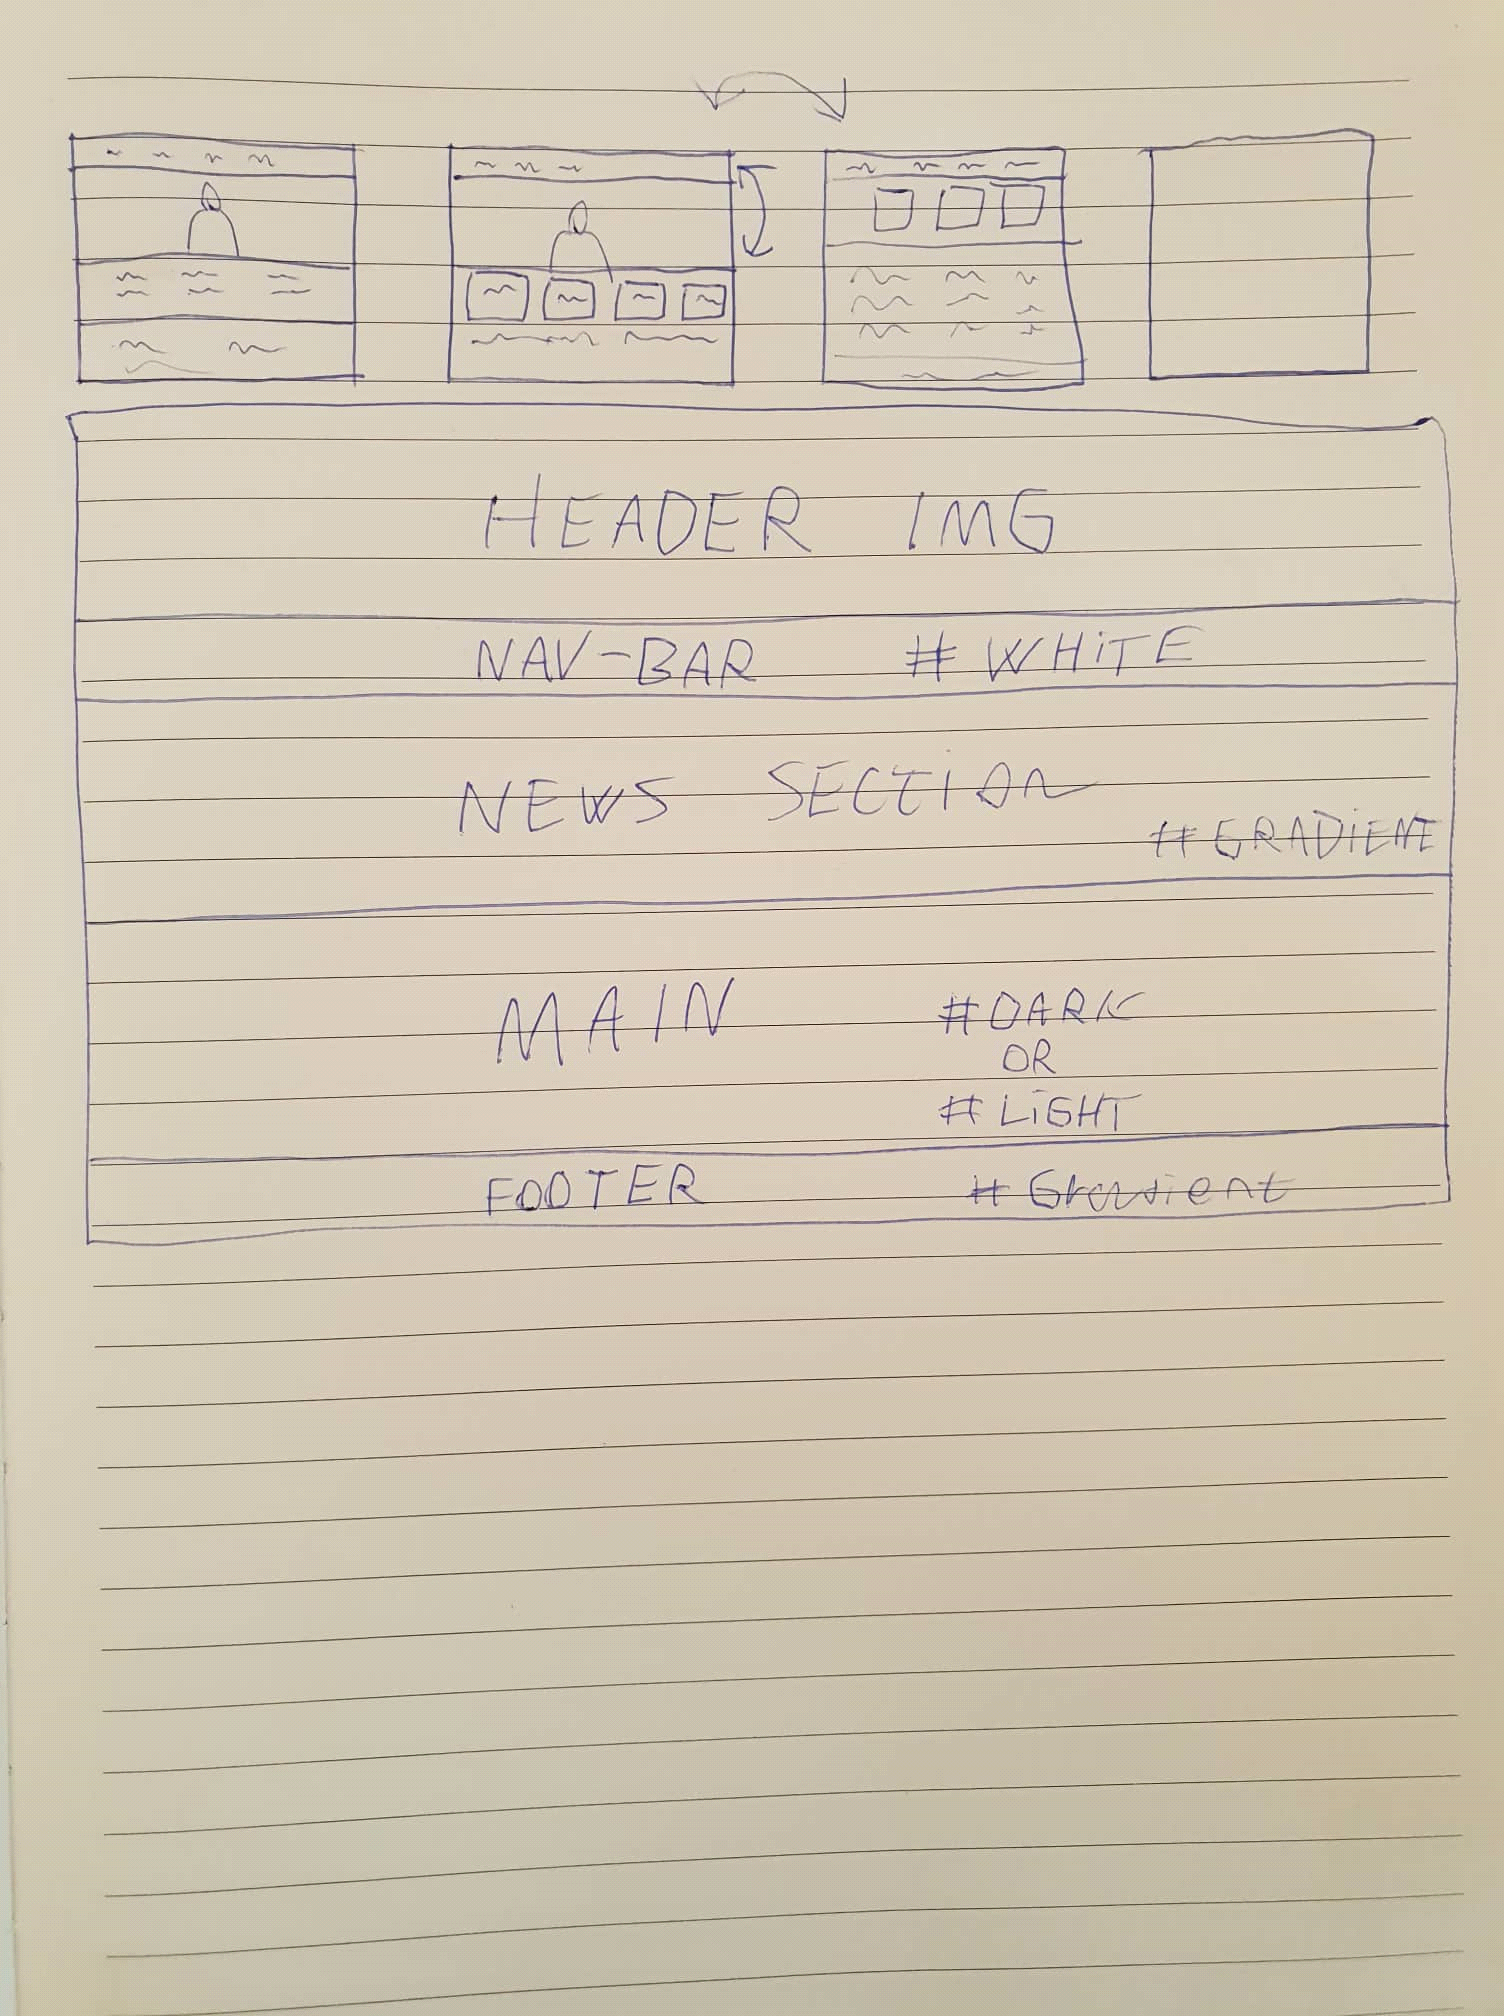 HEADER IMG
NAV-BAR # WHITE
NEWS SECTION
# GRADIENT
MAIN #DARK
OR
# LIGHT
FOOTER # Gradient